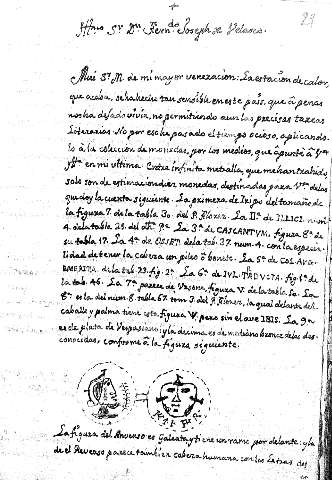 29
Illmo Sr Dn Ferndo Joseph de Velasco.
Mui Sr M. de mi mayor veneracion: La estacion de calor,
que acaba, se ha hecho tan sensible en este pais, que á penas
nos ha dejado vivir, no permitiendo aun las precisas tareas
Literarias. No por eso he pasado el tiempo ocioso, aplicando
lo á la coleccion de monedas, por los medios, que apunté á
en mi ultima. Entre infinita metalla, que me han trahido,
solo son de estimacion diez monedas, destinadas para
que doy la cuenta siguiente. La primera de Iripo del tamaño de
la figura 7. de la tabla 30. del P. Florez. La IIa. de ILLICI. num.
4. de la tabla 29. del dho Po. La 3a de CASCANTVM. figura 8a de
su tabla 17. La 4a de OSSET. de la tab. 37. num. 4. con la especia-
lidad de tener la cabeza un pileo ó bonete. La 5a de COL. AUG.
EMERITA. de la tab. 23. fig. 2a La 6a de IVL. TRADVCTA. fig. 1a de
la tab. 46. La 7a parece de figura V. de la tabla
8a es la del num 8. tabla 67. tom 3. del P. Florez, la qual delante del
caballo y palma tiene esta figura V. pero sin el ave IBIS. La 9a
es de plata de Vespasiano; y la decima es de mediano bronce de las des-
conocidas, conforme á la figura siguiente.
La figura del Anverso es Galeata y tiene un ramo por delante: y la
de el Reverso parece tambien cabeza humana con las Letras